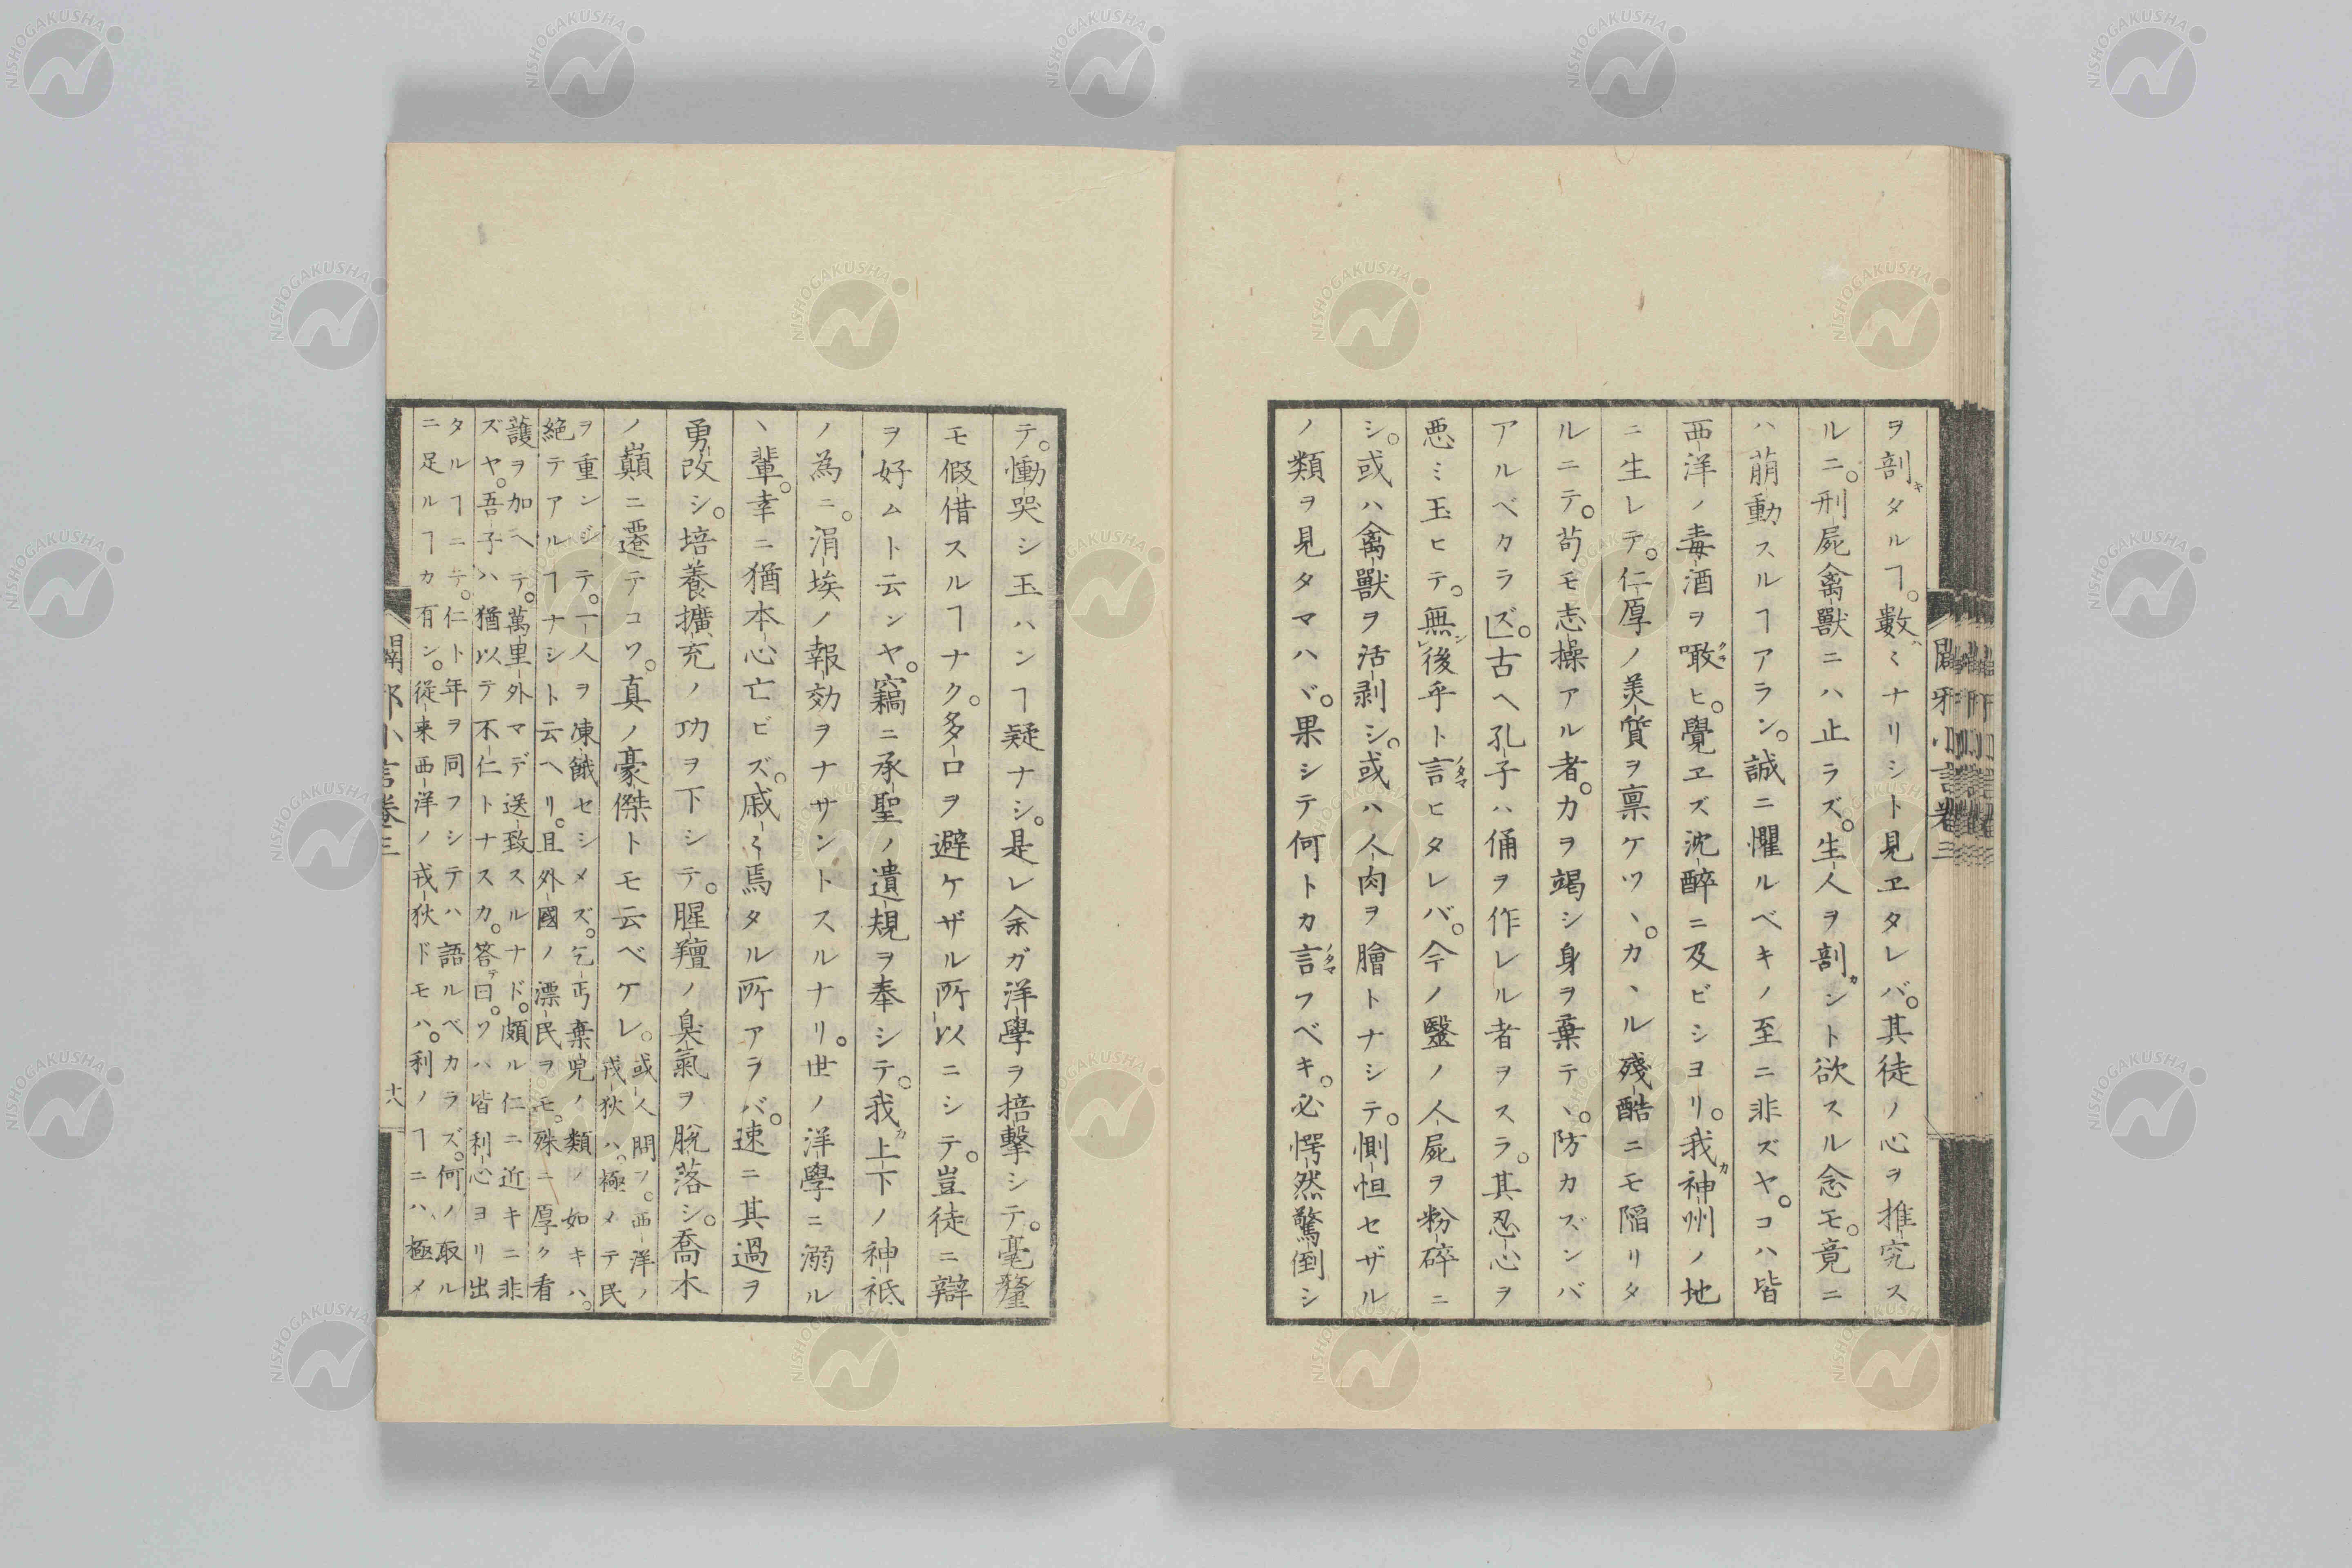 ヲ剖タルヿ。數〻ナリシト見ヱタレバ。其徒ノ心ヲ推究ス
ルニ。刑屍禽獸ニハ止ラズ。生人ヲ剖ント欲スル念モ。竟ニ
ハ萠動スルヿアラン。誠ニ懼ルベキノ至ニ非ズヤ。コハ皆
西洋ノ毒酒ヲ噉ヒ。覺ヱズ沈醉ニ及ビシヨリ。我神州ノ地
ニ生レテ。仁厚ノ美質ヲ禀ケツヽ。カヽル殘酷ニモ陷リタ
ルニテ。苟モ志操アル者。力ヲ竭シ身ヲ棄テヽ。防カズンバ
アルベカラズ。古ヘ孔子ハ俑ヲ作レル者ヲスラ。其忍心ヲ
悪ミ玉ヒテ。無後乎ト言ヒタレバ。今ノ醫ノ人屍ヲ粉碎ニ
シ。或ハ禽獸ヲ活剥シ。或ハ人肉ヲ膾トナシテ。惻怛セザル
ノ類ヲ見タマハヾ。果シテ何トカ言フベキ。必愕然驚倒シ
闢邪小言卷三
テ。慟哭シ玉ハンヿ疑ナシ。是レ余ガ洋學ヲ掊擊シテ。毫釐
モ假借スルヿナク。多口ヲ避ケザル所以ニシテ。豈徒ニ辯
ヲ好ムト云ンヤ。竊ニ承聖ノ遺規ヲ奉シテ。我上下ノ神祇
ノ為ニ。涓埃ノ報効ヲナサントスルナリ。世ノ洋學ニ溺ル
ヽ輩。幸ニ猶本心亡ビズ。戚〻焉タル所アラバ。速ニ其過ヲ
勇改シ。培養擴充ノ功ヲ下シテ。腥羶ノ臭氣ヲ脫落シ。喬木
ノ巔ニ遷テコソ。真ノ豪傑トモ云ベケレ。
或人問フ。西洋ノ
戎狄ハ。極メテ民
ヲ重ンジテ。一人ヲ凍餓セシメズ。乞丐棄兒ノ類ノ如キハ。
絶テアルヿナシト云ヘリ。且外國ノ漂民ヲモ。殊ニ厚ク看
護ヲ加ヘテ。萬里外マデ送致スルナド。頗ル仁ニ近キニ非
ズヤ。吾子ハ猶以テ不仁トナスカ。答曰。ソハ皆利心ヨリ出
タルヿニテ。仁ト年ヲ同フシテハ語ルベカラズ。何ノ取ル
ニ足ルヿカ有ン。從来西洋ノ戎狄ドモハ。利ノヿニハ、極メ
闢邪小言卷三
十八